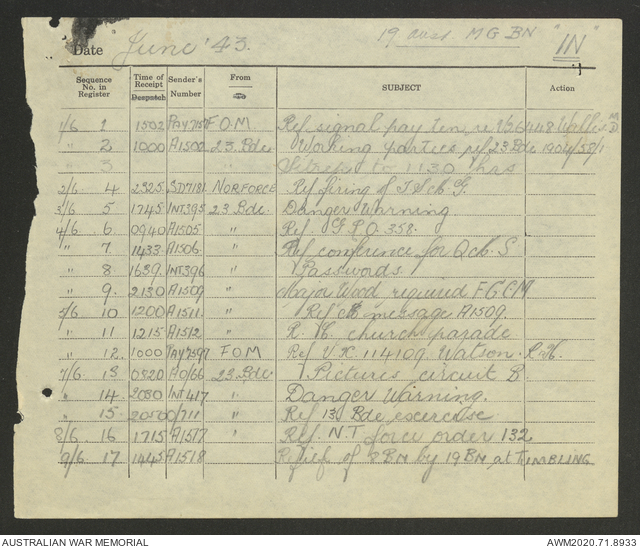 Date June '43.
19 Aust. MG BN "IN"
Sequence No. in Register Time of Receipt Despatch Sender's Number From SUBJECT Action
1/6 1 1502 PAY7157 F.O.M. Ref signal pay ten re Wallis M.D.
" 2 1000 A1500 23 Bde Working parties ref 23 Bde 1904/58/1
3 Sitrep to 1130 hrs
2/6 4 2325 SD7181 NORFORCE Ref firing of
3/6 5 1745 INT395 23 Bde. Danger Warning
4/6 6 0940 A1505 " Ref. G.P.O. 358.
" 7 1433 A1506 " Ref conference for
" 8 1639 INT396 " Passwords
" 9 2130 A1509 " Major Wood required F.G.C.M
5/6 10 1200 A1511 " Ref message A1509.
" 11 1215 A1512 " R.C. church parade
" 12 1000 PAY7597 FOM Ref V.X. 114109 Watson
7/6 13 0820 AO/66 23 Bde Pictures circuit B.
" 14 2030 Int 417 " Danger Warning.
" 15 2050 O/711 " Ref 13 Bde excercise
8/6 16 1715 A1517 " Ref. N.T force order 132
9/6 17 1445 A1518 Relief of 8 BN by 19 BN at TUMBLING
AUSTRALIAN WAR MEMORIAL
AWM2020.71.8933